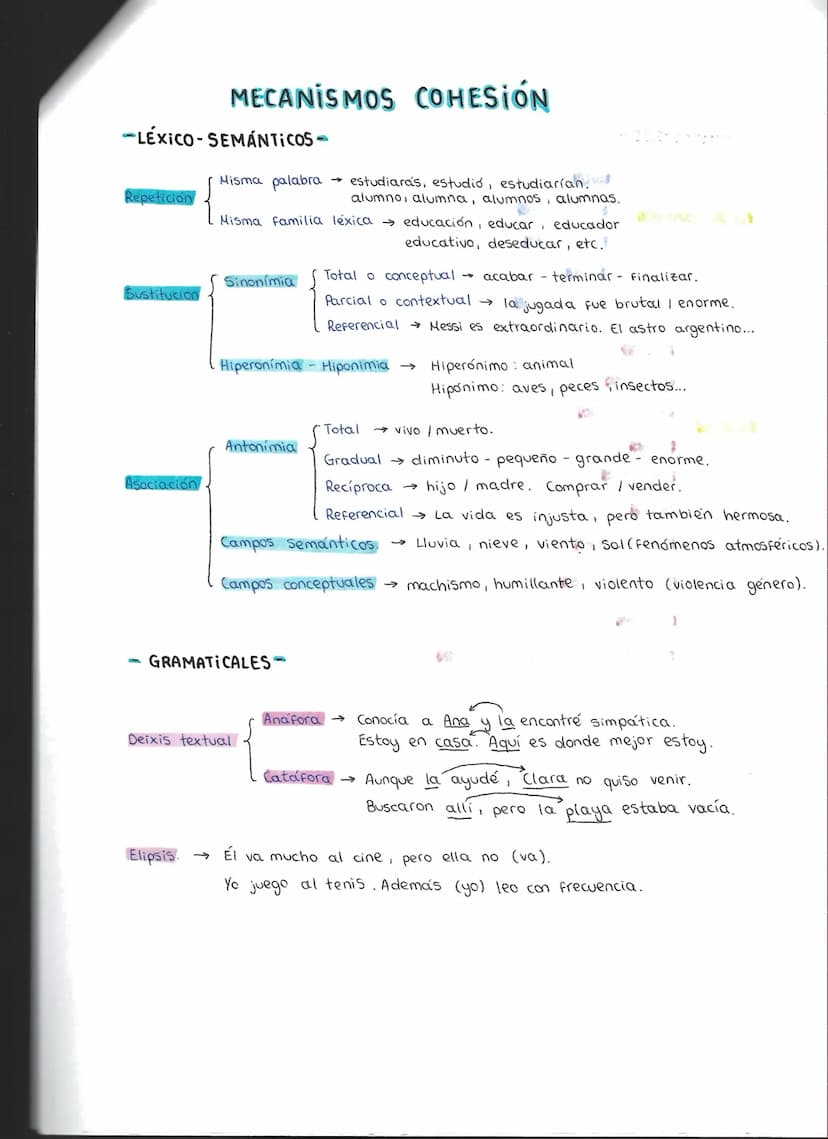 MECANISMOS COHESIÓN
- LÉXICO - SEMÁNTICOS -
Repetición
Misma palabra → estudiarás, estudió, estudiarían.
alumno, alumna, alumnos, alumnas.
Misma familia léxica → educación, educar, educador
educativo, deseducar, etc.
Sustitución
Sinonímia
Total o conceptual → acabar - terminar - finalizar.
Parcial o contextual → la jugada fue brutal / enorme.
Referencial → Messi es extraordinario. El astro argentino...
Hiperonímia - Hiponimia → Hiperónimo: animal
Hipónimo: aves, peces, insectos...
Asociación
Antonímia
Total → vivo / muerto.
Gradual → diminuto - pequeño - grande - enorme.
Recíproca → hijo / madre. Comprar / vender.
Referencial → La vida es injusta, pero también hermosa.
Campos semánticos. → Lluvia, nieve, viento, Sol (fenómenos atmosféricos).
Campos conceptuales → machismo, humillante, violento (violencia género).
- GRAMATICALES -
Deixis textual
Anáfora → Conocía a Ana y la encontré simpática.
Estoy en casa. Aquí es donde mejor estoy.
Catáfora → Aunque la ayudé, Clara no quiso venir.
Buscaron allí, pero la playa estaba vacía.
Elipsis. → Él va mucho al cine, pero ella no (va).
Yo juego al tenis. Además (yo) leo con frecuencia.